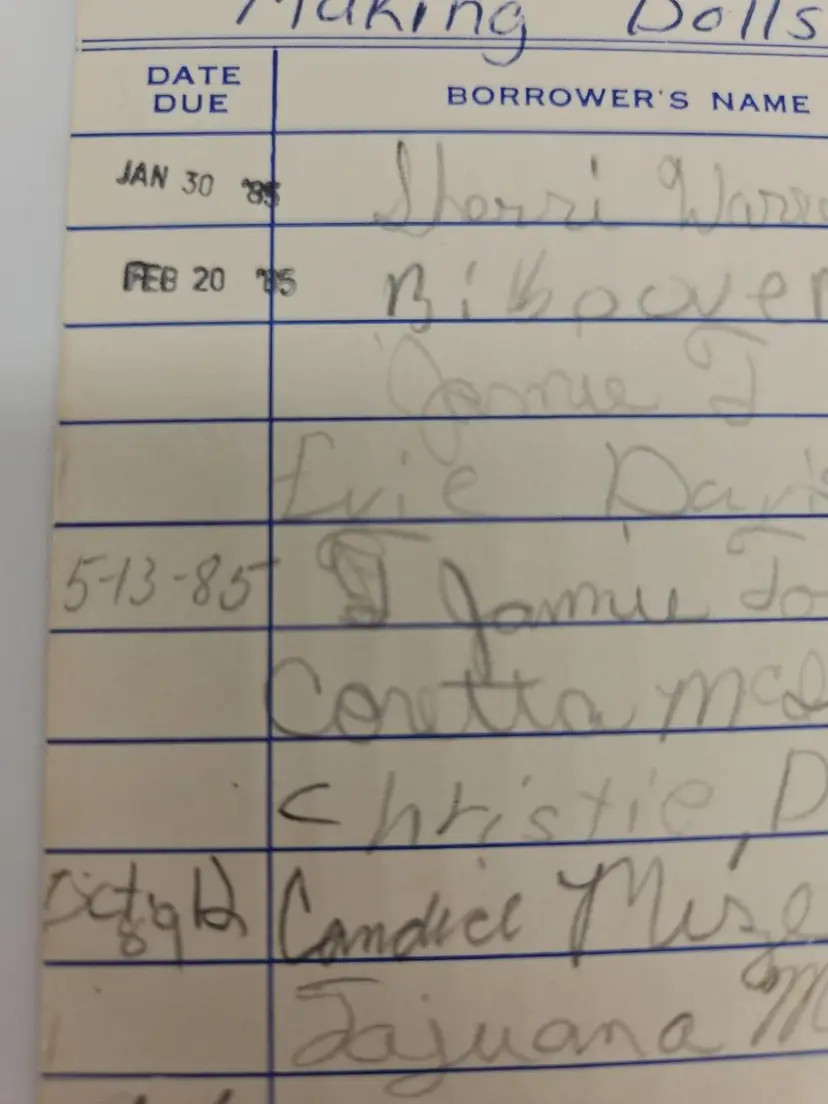 Making Dolls
DATE DUE BORROWER'S NAME
JAN 30 '85 Sherri
FEB 20 '85
Jamie T
Evie Davis
5-13-85 T Jamie To
Coretta McD
Christie, D
Candice Mize
Tajuana M